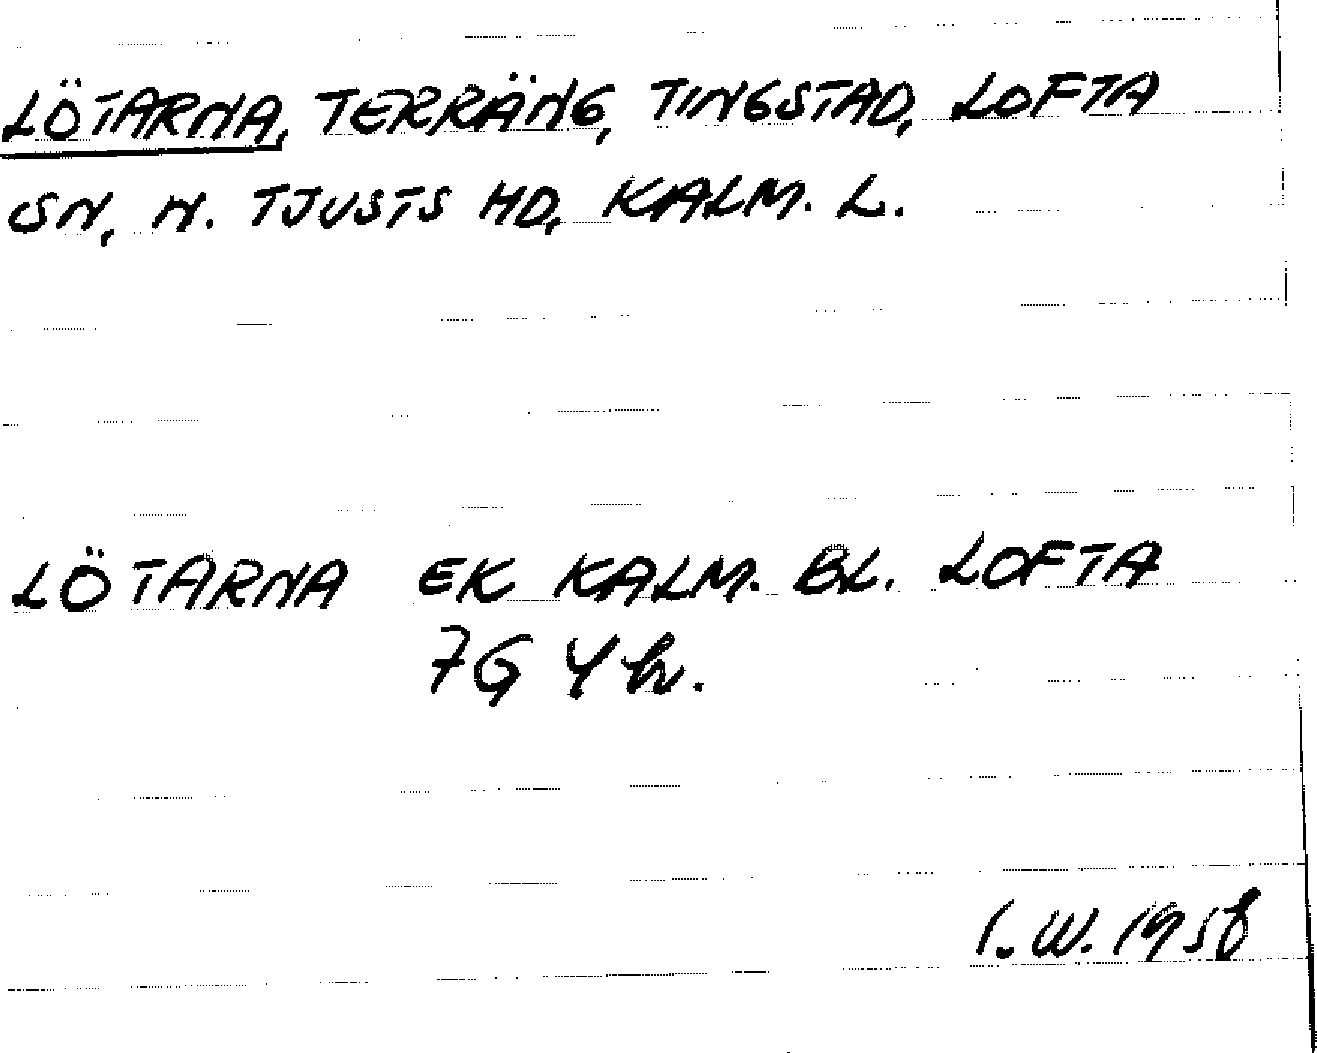 LÖTARNA, TERRÄNG, TINGSTAD, LOFTA
SN, N. TJUSTS HD, KALM. L.
LÖTARNA EK KALM. BL. LOFTA
7G 4h.
I.W. 1958